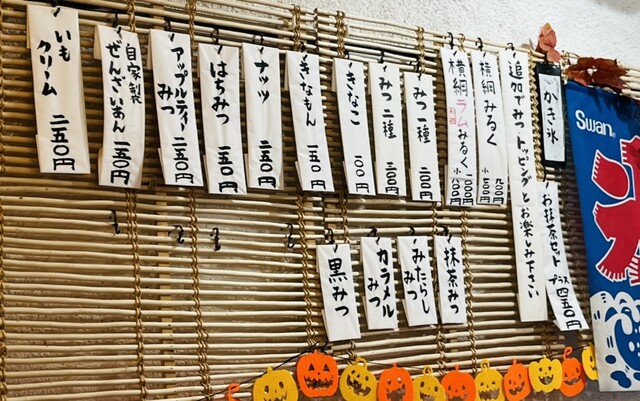 かき氷
追加でみつ トッピングとお楽しみ下さい
お抹茶セット プラス四五〇円
横綱みるく 九〇〇円
小
横綱ラムみるく
小
みつ一種 一〇〇円
みつ二種 二〇〇円
きなこ 一〇〇円
きなもん 一五〇円
ナッツ 一五〇円
はちみつ 一五〇円
アップルティみつ 一五〇円
自家製
ぜんざいあん 一五〇円
いもクリーム 二五〇円
抹茶みつ
みたらしみつ
カラメルみつ
黒みつ
Swan
氷